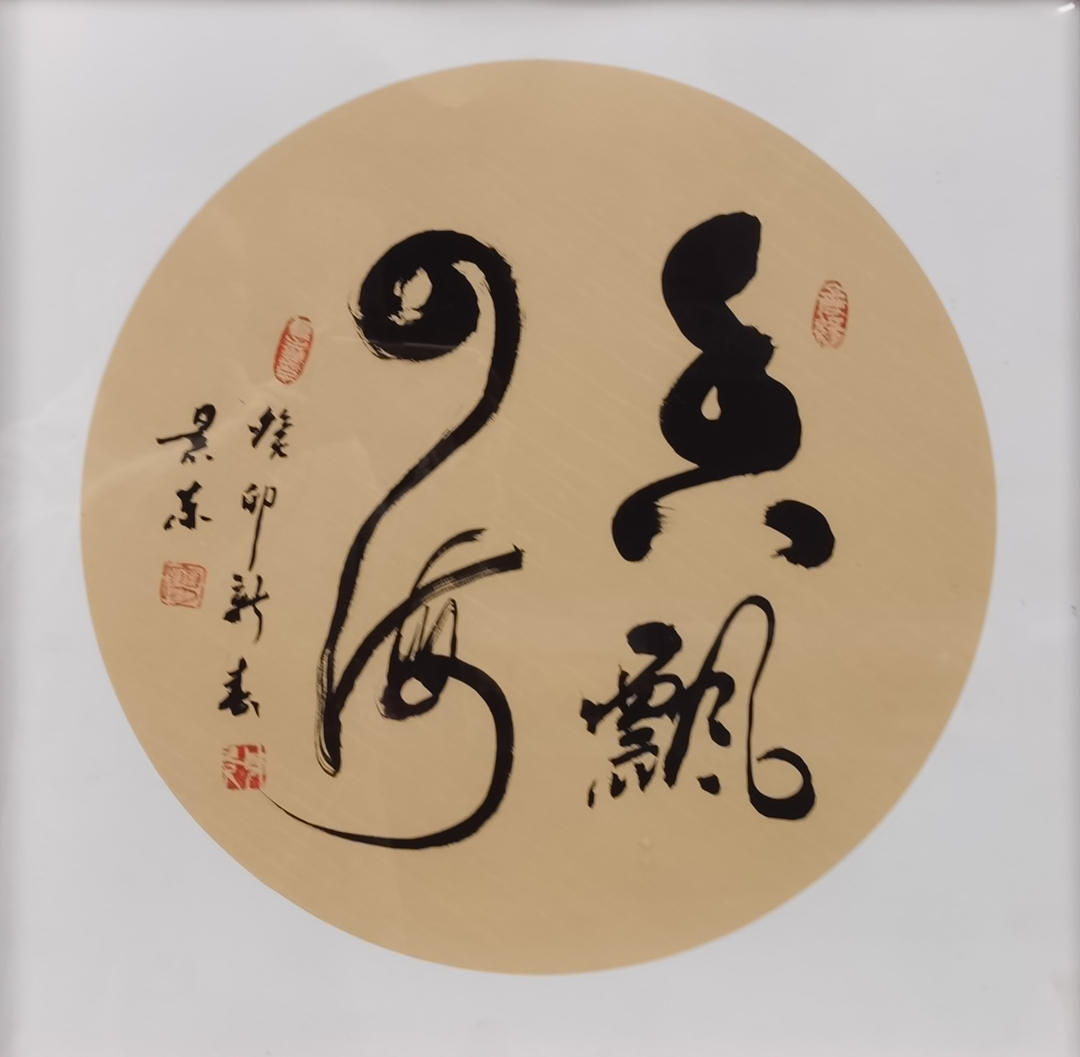 香飄
四海
癸卯新春
景东